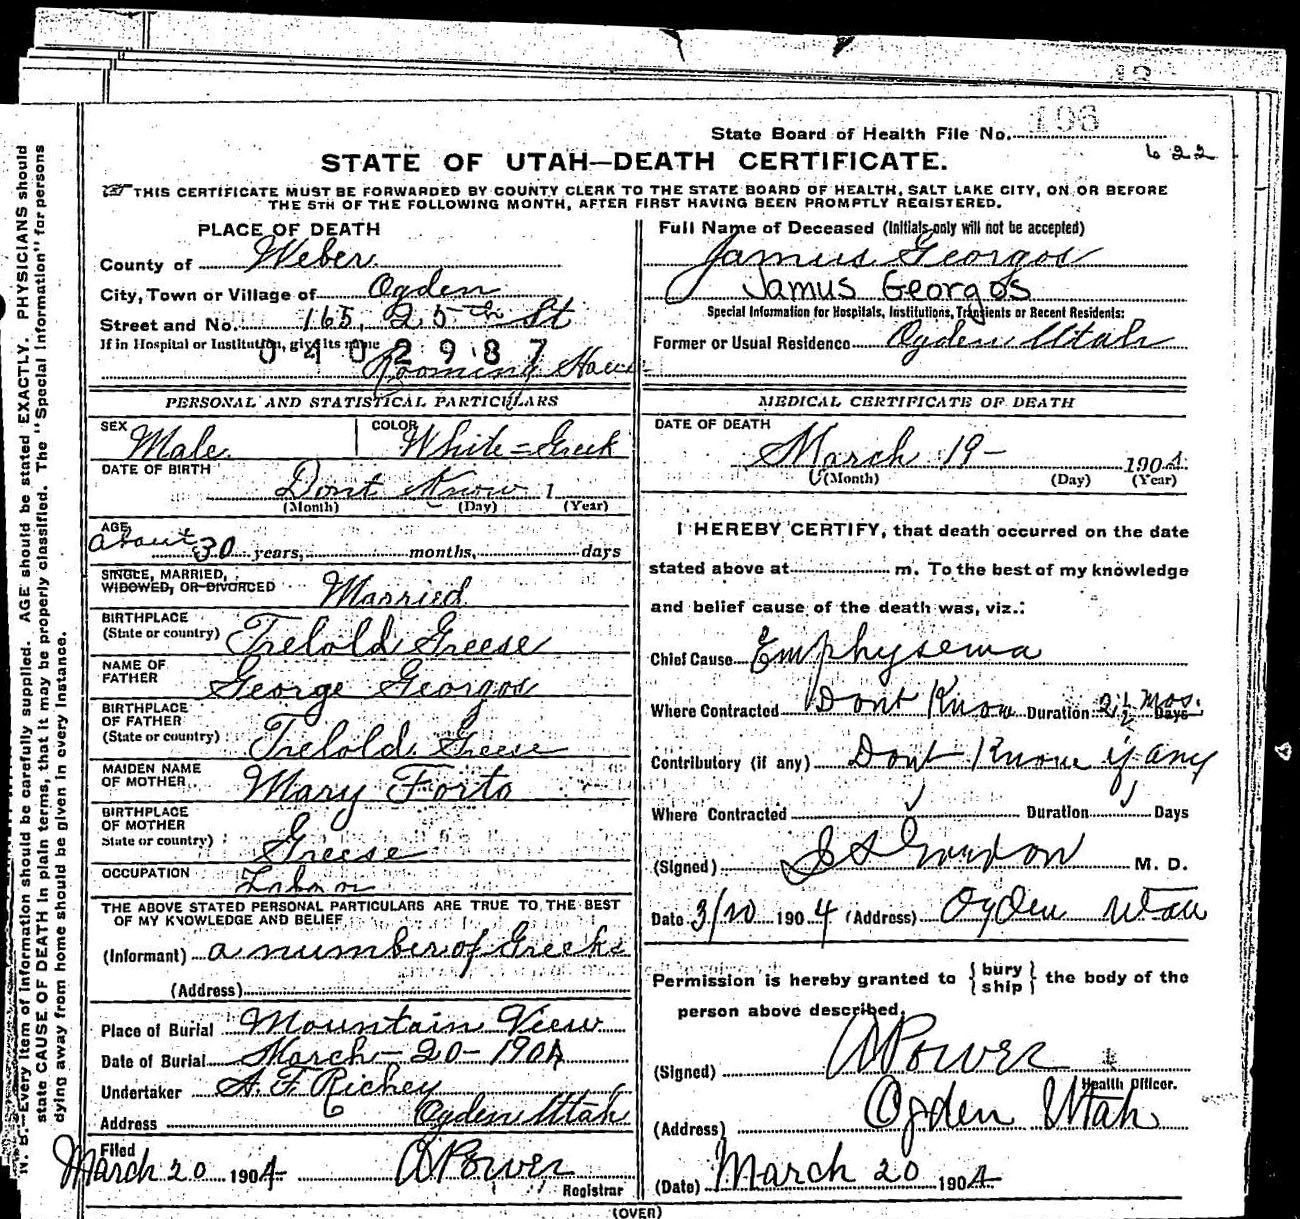 12
State Board of Health File No. 106
622
STATE OF UTAH—DEATH CERTIFICATE.
THIS CERTIFICATE MUST BE FORWARDED BY COUNTY CLERK TO THE STATE BOARD OF HEALTH, SALT LAKE CITY, ON OR BEFORE
THE 5TH OF THE FOLLOWING MONTH, AFTER FIRST HAVING BEEN PROMPTLY REGISTERED.
PLACE OF DEATH
County of Weber
City, Town or Village of Ogden
Street and No. 165, 25th St
If in Hospital or Institution, give its name
0402987
Rooming House
PERSONAL AND STATISTICAL PARTICULARS
SEX Male
COLOR White = Greek
DATE OF BIRTH
Dont Know 1
(Month) (Day) (Year)
AGE
About 30 years, months, days
SINGLE, MARRIED,
WIDOWED, OR DIVORCED Married
BIRTHPLACE
(State or country) Trelold Greese
NAME OF
FATHER George Georgos
BIRTHPLACE
OF FATHER
(State or country) Trelold Greese
MAIDEN NAME
OF MOTHER Mary Forto
BIRTHPLACE
OF MOTHER
State or country) Greese
OCCUPATION Labor
THE ABOVE STATED PERSONAL PARTICULARS ARE TRUE TO THE BEST
OF MY KNOWLEDGE AND BELIEF
(Informant) a number of Greeks
(Address)
Place of Burial Mountain View
Date of Burial March - 20 - 1904
Undertaker A. F. Richey
Address Ogden Utah
Filed
March 20 1904 A Power
Registrar
Full Name of Deceased (Initials only will not be accepted)
Jamus Georgos
Jamus Georgos
Special Information for Hospitals, Institutions, Transients or Recent Residents:
Former or Usual Residence Ogden Utah
MEDICAL CERTIFICATE OF DEATH
DATE OF DEATH
March 19 - 1904
(Month) (Day) (Year)
I HEREBY CERTIFY, that death occurred on the date
stated above at m. To the best of my knowledge
and belief cause of the death was, viz.:
Chief Cause Emphysema
Where Contracted Dont Know Duration 2 1/2 Mos. Days
Contributory (if any) Dont Know if any
Where Contracted Duration Days
(Signed) Gordon M. D.
Date 3/20 1904 (Address) Ogden Utah
Permission is hereby granted to { bury ship } the body of the
person above described.
(Signed) A Power
Health Officer.
(Address) Ogden Utah
(Date) March 20 1904
(OVER)
N. B.—Every item of information should be carefully supplied. AGE should be stated EXACTLY. PHYSICIANS should
state CAUSE OF DEATH in plain terms, that it may be properly classified. The "Special Information" for persons
dying away from home should be given in every instance.